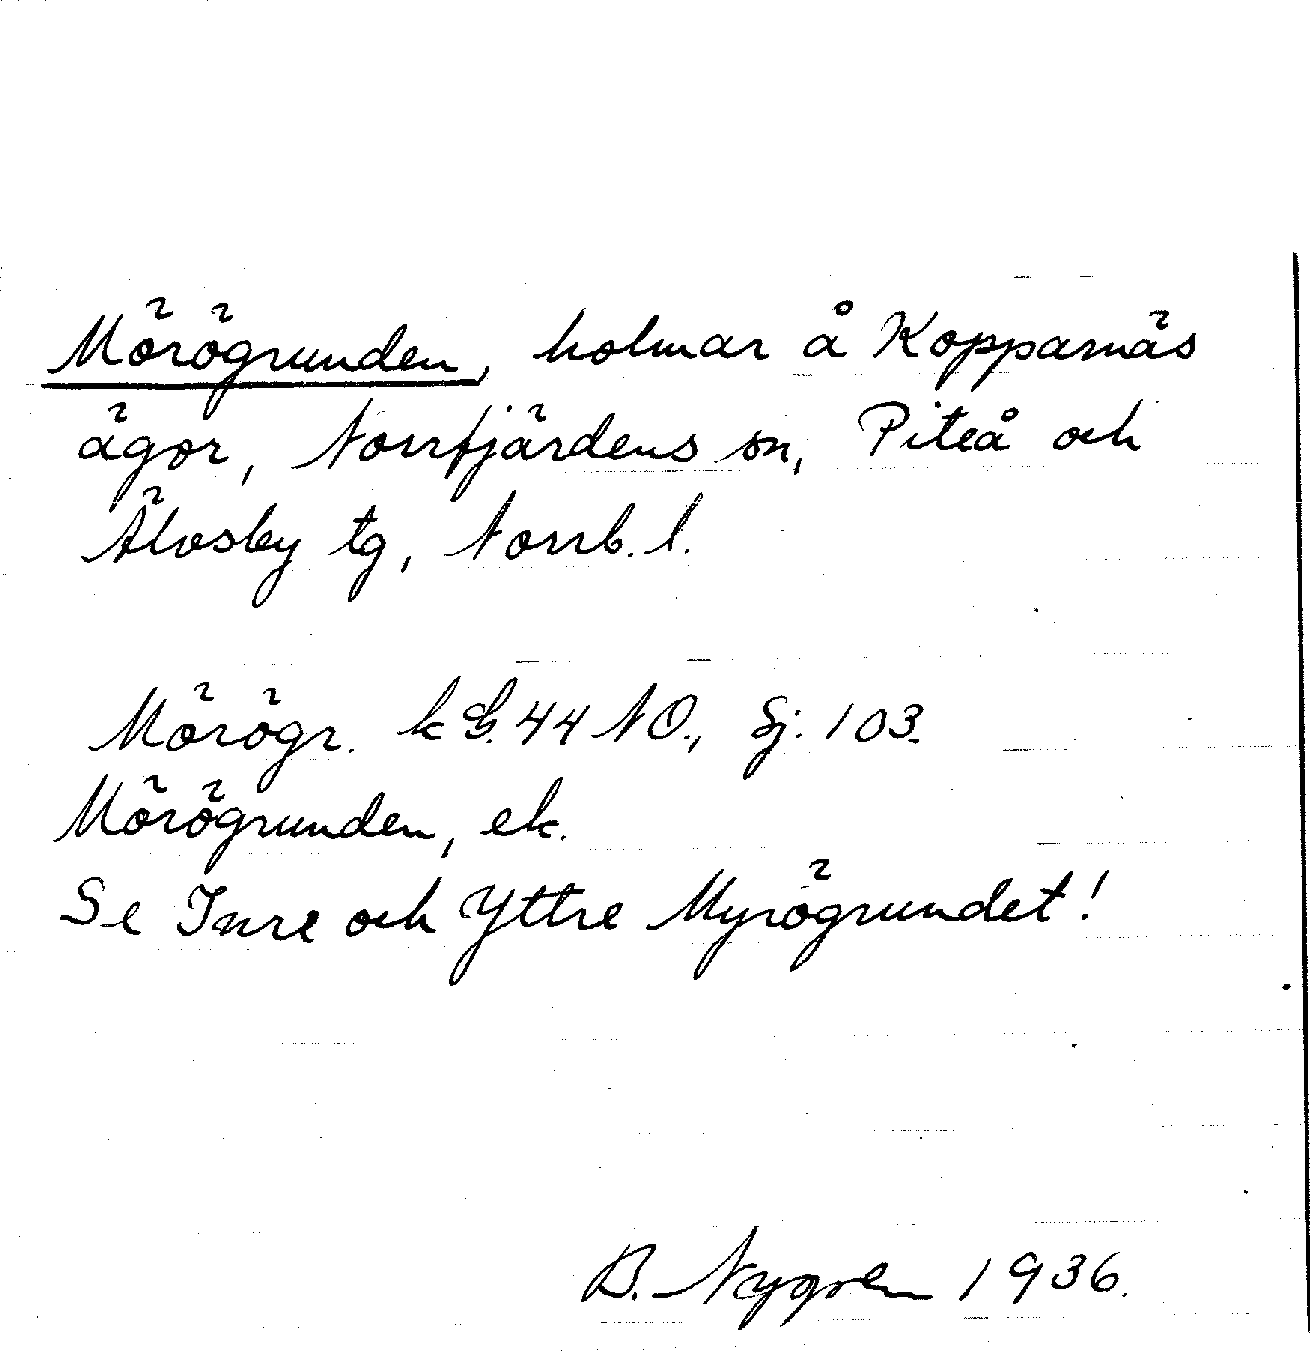 Mörögrunden, holmar å Kopparnäs
ägor, Norrfjärdens sn, Piteå och
Älvsby tg, Norrb. l.
Mörögr. k G. 44 NO., Sj. 103.
Mörögrunden, ek.
Se Inre och Yttre Myrögrundet!
B. Nygren 1936.